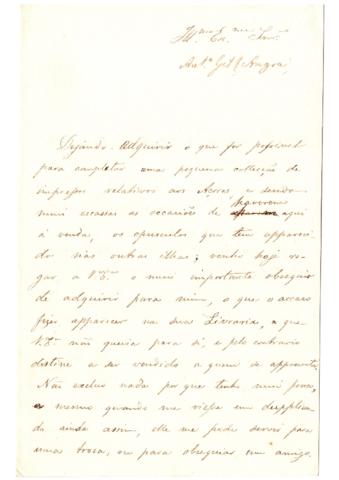 Ill.mo Ex.mo Snr.
Ant.o Gil / Angra,
Dejando adquirir o que for possivel
para completar uma pequena collecção de
impressos relativos aos Açores, e sendo
mui escassas as occasiões de haverem aqui
á venda, os opusculos que tem appareci-
do nas outras ilhas; venho hoje ro-
gar a V.Ex.a o mui importante obsequio
de adquirir para mim, o que o acaso
fizer apparecer na sua Livraria, e que
V.Ex.a não queira para si, e pelo contrario
destine a ser vendido a quem se apresente.
Não excluo nada por que tenho mui pouco,
e mesmo quando me viesse em dupplica-
do ainda assim, elle me pode servir para
uma troca, ou para obsequiar um amigo.